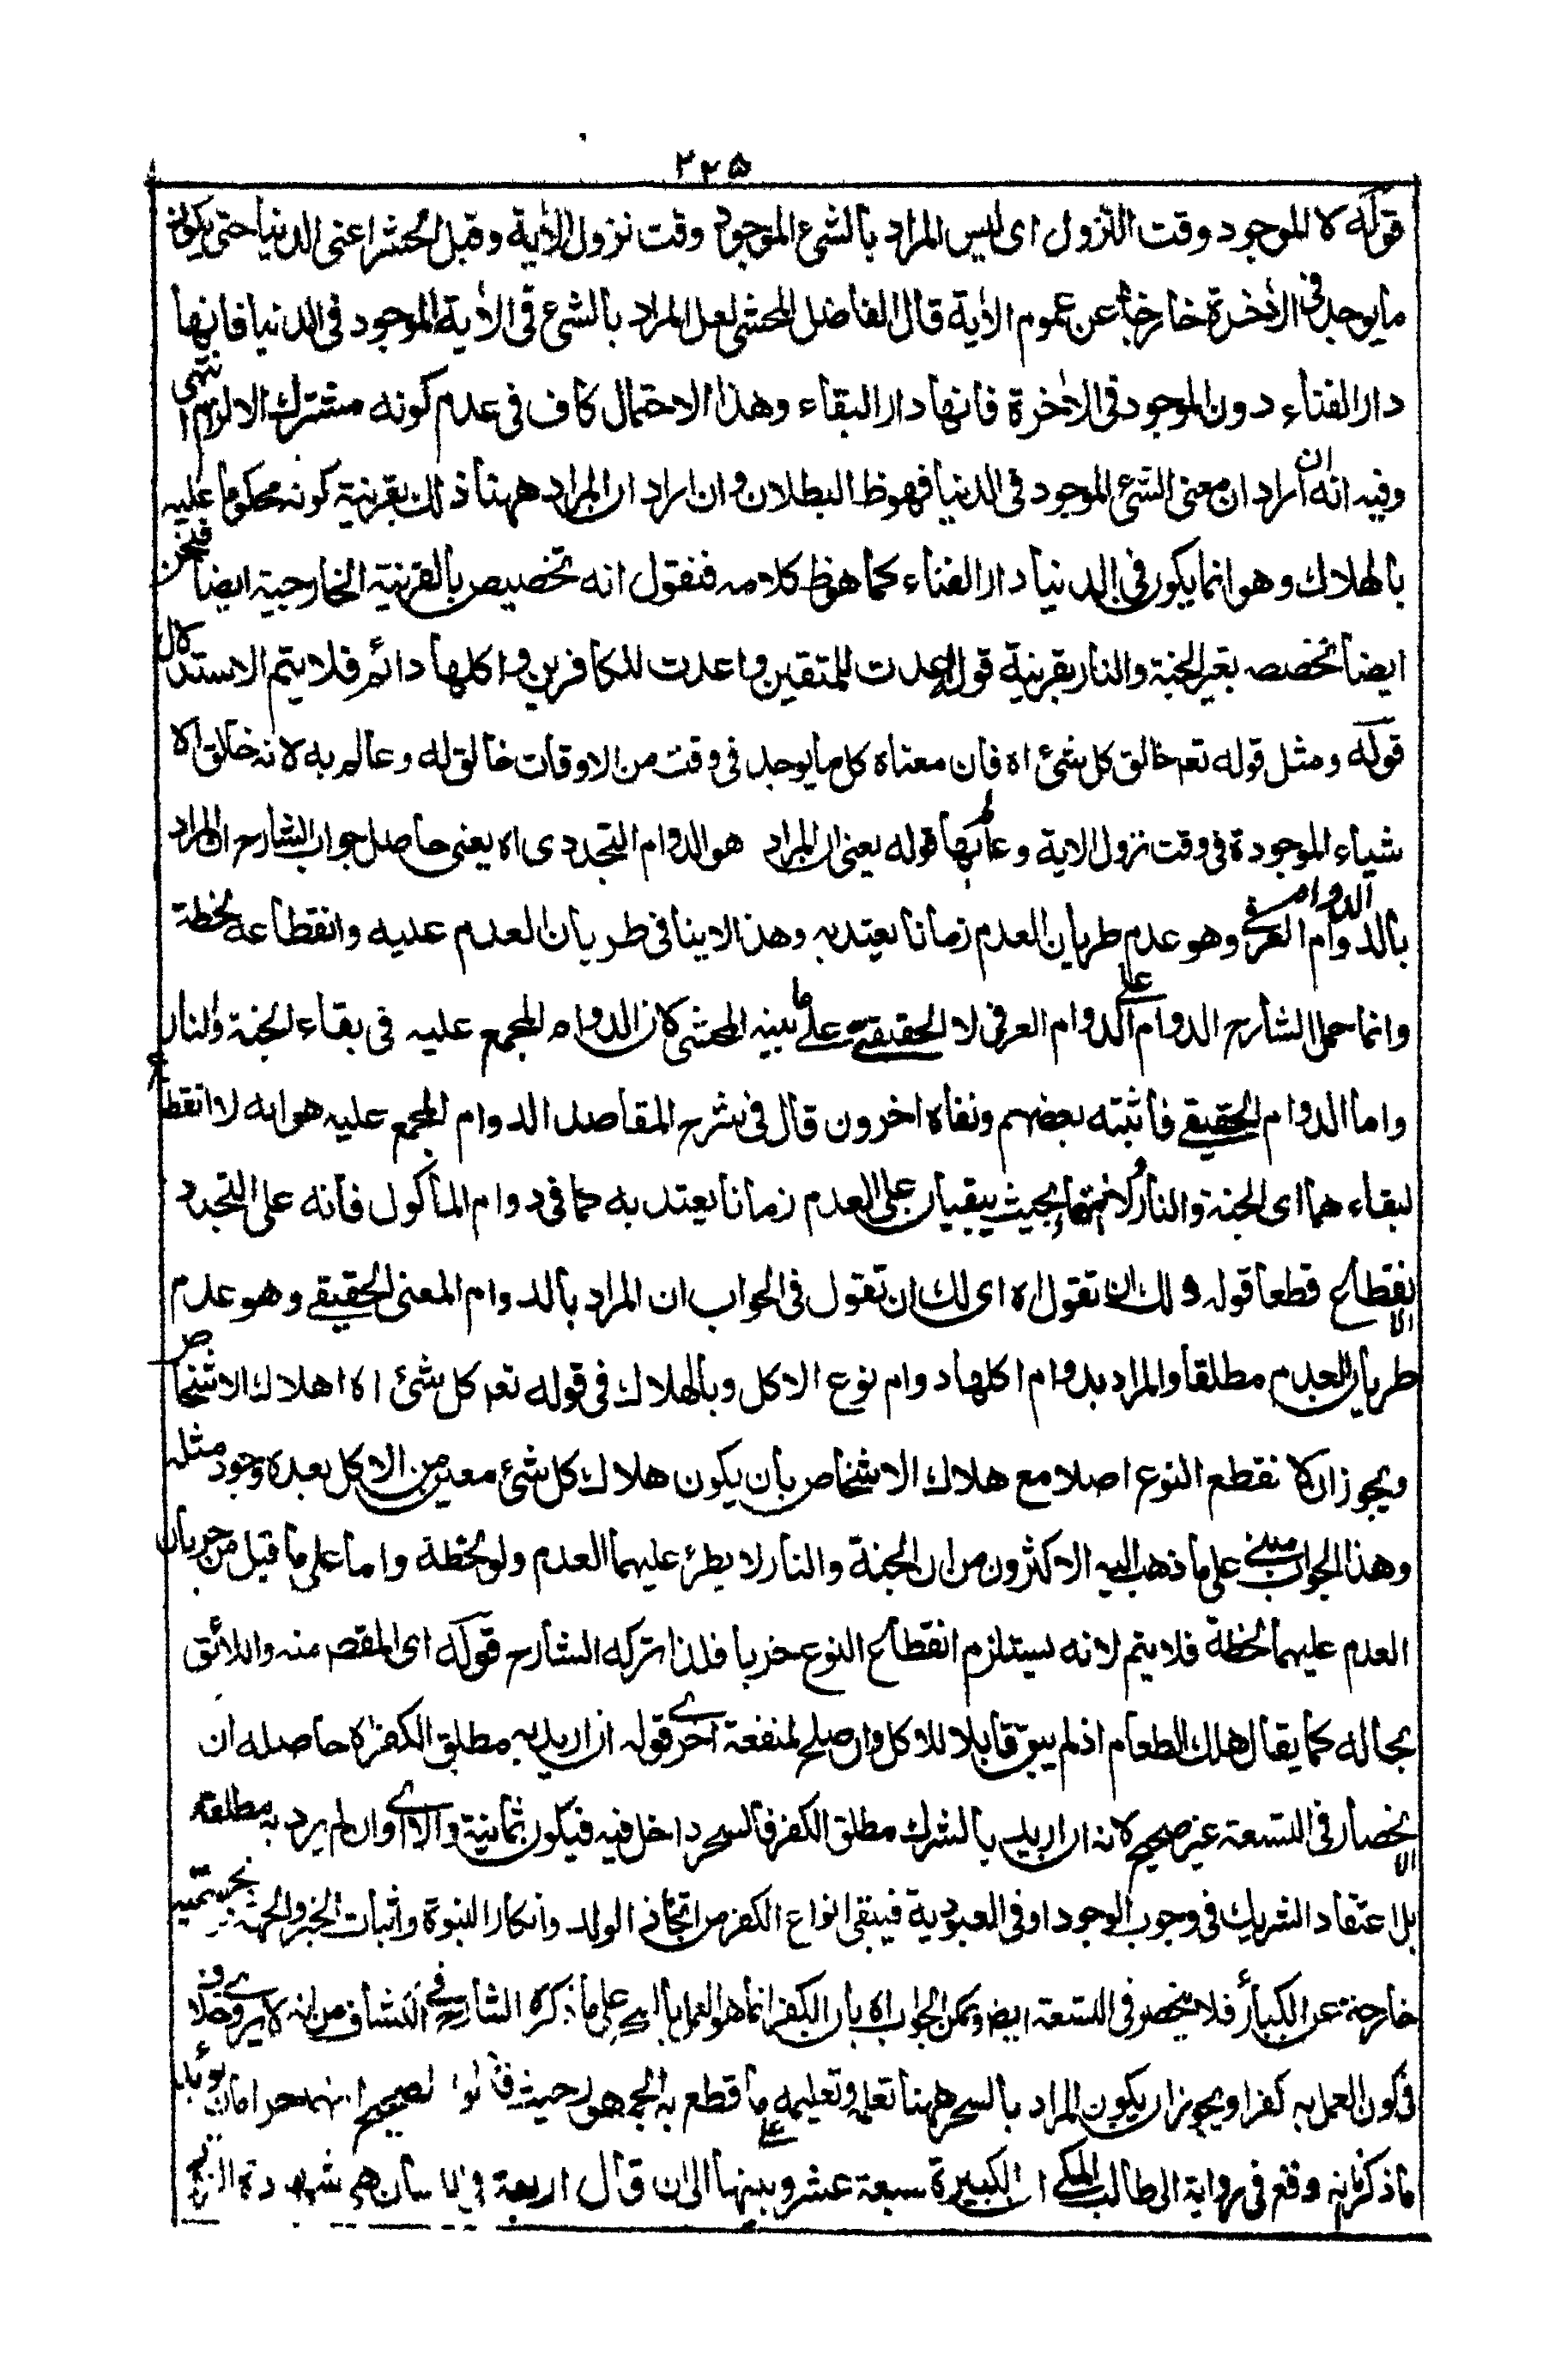 ٢٢٥
قوله لا الموجود وقت النزول اى ليس المراد بالشئ الموجود وقت نزول الآية وقبل الحشر اعنى الدنيا حتى يكون
ما يوجد فى الآخرة خارجا عن عموم الآية قال الفاضل المحشى لعل المراد بالشئ فى الآية الموجود فى الدنيا فانها
دار الفناء دون الموجود فى الآخرة فانها دار البقاء وهذا الاحتمال كاف فى عدم كونه مشترك الالزام انتهى
وفيه انه ان اراد ان معنى الشئ الموجود فى الدنيا فهو ظ البطلان وان اراد ان المراد ههنا ذلك بقرينة كونه محكوما عليه
بالهلاك وهو انما يكون فى الدنيا دار الفناء كما هو ظ كلامه فنقول انه تخصيص بالقرينة الخارجية ايضا فنحن
ايضا نخصصه بغير الجنة والنار بقرينة قوله اعدت للمتقين واعدت للكافرين واكلها دائم فلا يتم الاستدلال
قوله ومثل قوله تعم خالق كل شئ اه فان معناه كل ما يوجد فى وقت من الاوقات خالق له وعالم به لا نه خالق الا
شياء الموجودة فى وقت نزول الاية وعالم بها قوله يعنى ان المراد هو الدوام التجددى اه يعنى حاصل جواب الشارح ان المراد
بالدوام الدوام العرفى وهو عدم طريان العدم زمانا يعتد به وهذا لاينافى طريان العدم عليه وانقطاعه لحظة
وانما حمل الشارح الدوام على الدوام العرفى لا الحقيقى على ما بينه المحشى لان الدوام المجمع عليه فى بقاء الجنة والنار
واما الدوام الحقيقى فاثبته بعضهم ونفاه اخرون قال فى شرح المقاصد الدوام المجمع عليه هو انه لا انقطاع
لبقاء هما اى الجنة والنار ولا انتهاء بحيث يبقيان على العدم زمانا يعتد به كما فى دوام المأكول فانه على التجدد
الانقطاع قطعا قوله ولك ان تقول اه اى لك ان تقول فى الجواب ان المراد بالدوام المعنى الحقيقى وهو عدم
طريان العدم مطلقا والمراد بدوام اكلها دوام نوع الاكل وبالهلاك فى قوله تعم كل شئ اه اهلاك الاشخاص
ويجوز ان لا نقطع النوع اصلا مع هلاك الاشخاص بان يكون هلاك كل شئ معين من الاكل بعده وجود مثله
وهذا الجواب مبنى على ما ذهب اليه الاكثرون من ان الجنة والنار لا يطرئ عليهما العدم ولو لحظة واما على ما قيل من جريان
العدم عليهما لحظة فلا يتم لانه يستلزم انقطاع النوع جزبا فلذا تركه الشارح قوله اى المقصم منه واللائق
بحاله كما يقال هلك الطعام اذ لم يبق قابلا للاكل وان صلح لمنفعة اخرى قوله ان اريد به مطلق الكفر اه حاصله ان
الانحصار فى التسعة غير صحيح لانه ان اريد بالشرك مطلق الكفر فالسحر داخل فيه فيكون ثمانية والا اى وان لم يرد به مطلقه
بل اعتقاد الشريك فى وجوب الوجود او فى العبودية فيبقى انواع الكفر من اتخاذ الولد وانكار النبوة واثبات الحيز والجهة
خارجة عن الكبائر فلا ينحصر فى التسعة ايضا ويمكن الجواب اه بان الكفر انما هو العمل بالسحر على ما ذكره الشارح فى الكشاف من انه لا يروى خلاف
فى كون العمل به كفرا ويجوز ان يكون المراد بالسحر ههنا تعلمه وتعليمه ما قطع به الجمهور حيث قالوا الصحيح انهما حرامان
لما ذكرنا انه وقع فى رواية ابى طالب المكى ان الكبيرة سبعة عشر وبينها الى ان قال اربعة فى اللسان هى شهادة الزور